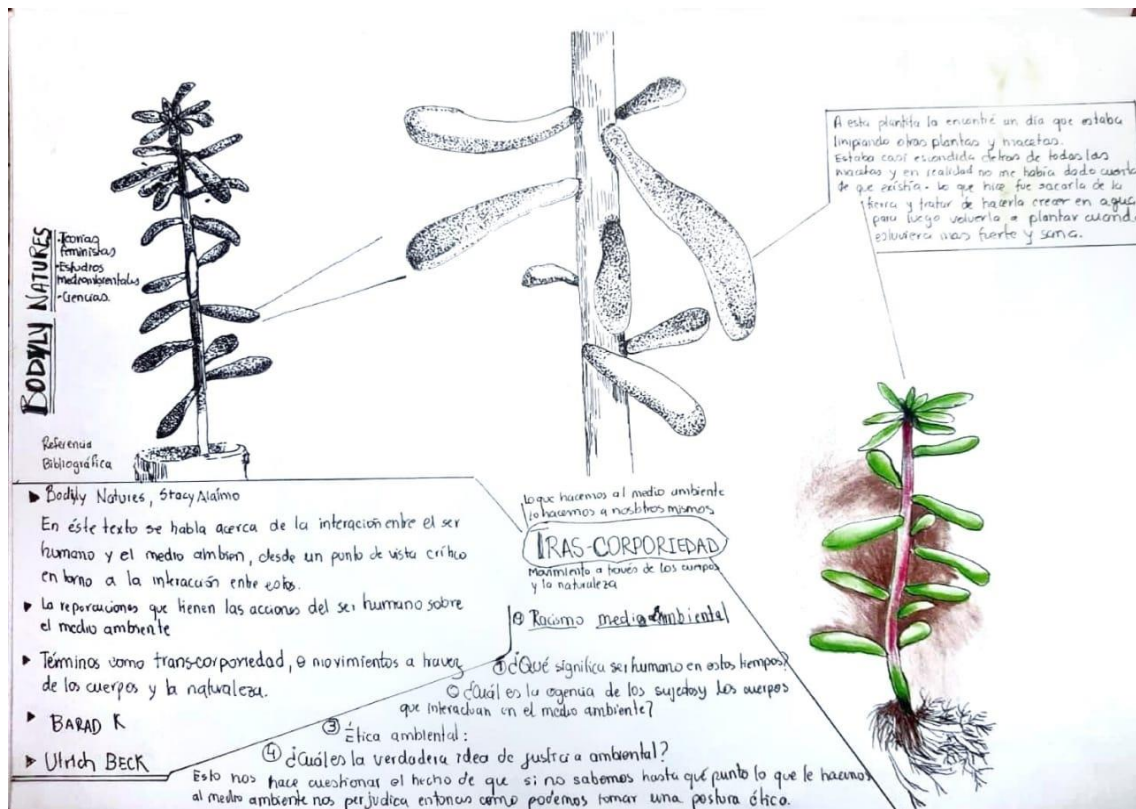 BODYLY NATURES
·Teorías
feministas
·Estudios
medioambientales
·Ciencias.
Referencia
Bibliográfica
A esta plantita la encontré un día que estaba
limpiando otras plantas y macetas.
Estaba casi escondida detras de todas las
macetas y en realidad no me había dado cuenta
de que existía. Lo que hice fue sacarla de la
tierra y tratar de hacerla crecer en agua
para luego volverla a plantar cuando
estuviera mas fuerte y sana.
▶ Bodyly Natures, Stacy Alaimo
En éste texto se habla acerca de la interacion entre el ser
humano y el medio ambien, desde un punto de vista crítico
en torno a la interacción entre estos.
▶ La reporaciones que tienen las acciones del ser humano sobre
el medio ambiente
▶ Términos como trans-corporiedad, o movimientos a travez
de los cuerpos y la naturaleza.
▶ BARAD K
▶ Ulrich BECK
Lo que hacemos al medio ambiente
lo hacemos a nosotros mismos
TRAS-CORPORIEDAD
Movimiento a través de los cuerpos
y la naturaleza
Racismo medio Ambiental
① ¿Qué significa ser humano en estos tiempos?
¿Cuál es la agencia de los sujetos y los cuerpos
que interactuan en el medio ambiente?
③ Ética ambiental:
④ ¿Cuáles la verdadera idea de justicia ambiental?
Esto nos hace cuestionar el hecho de que si no sabemos hasta qué punto lo que le hacemos
al medio ambiente nos perjudica entonces como podemos tomar una postura ético.